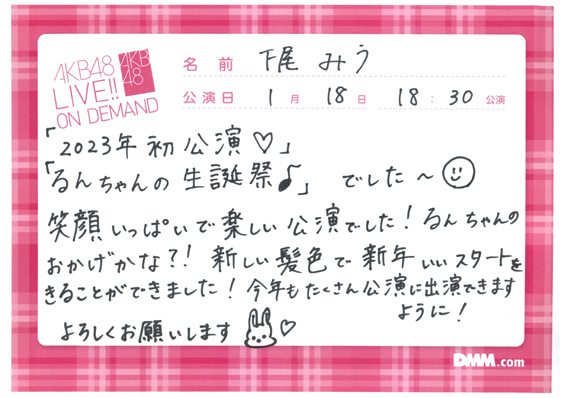 AKB48
LIVE!!
ON DEMAND
AKB
48
名前 下尾 みう
公演日 1月 18日 18:30 公演
「2023年 初 公演♡」
「るんちゃんの 生誕祭♪」 でした〜
笑顔いっぱいで楽しい公演でした！るんちゃんの
おかげかな？！ 新しい髪色で 新年 いいスタートを
きることができました！今年もたくさん公演に出演できます
ように！
よろしくお願いします ♡
DMM.com